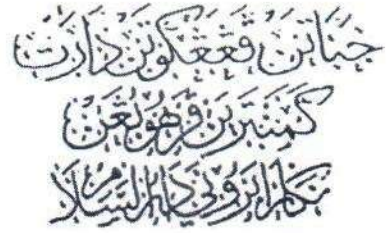 جباتن ڤڠڠكوتن دارت
كمنترين ڤرهوبوڠن
نڬارا بروني دارالسلام